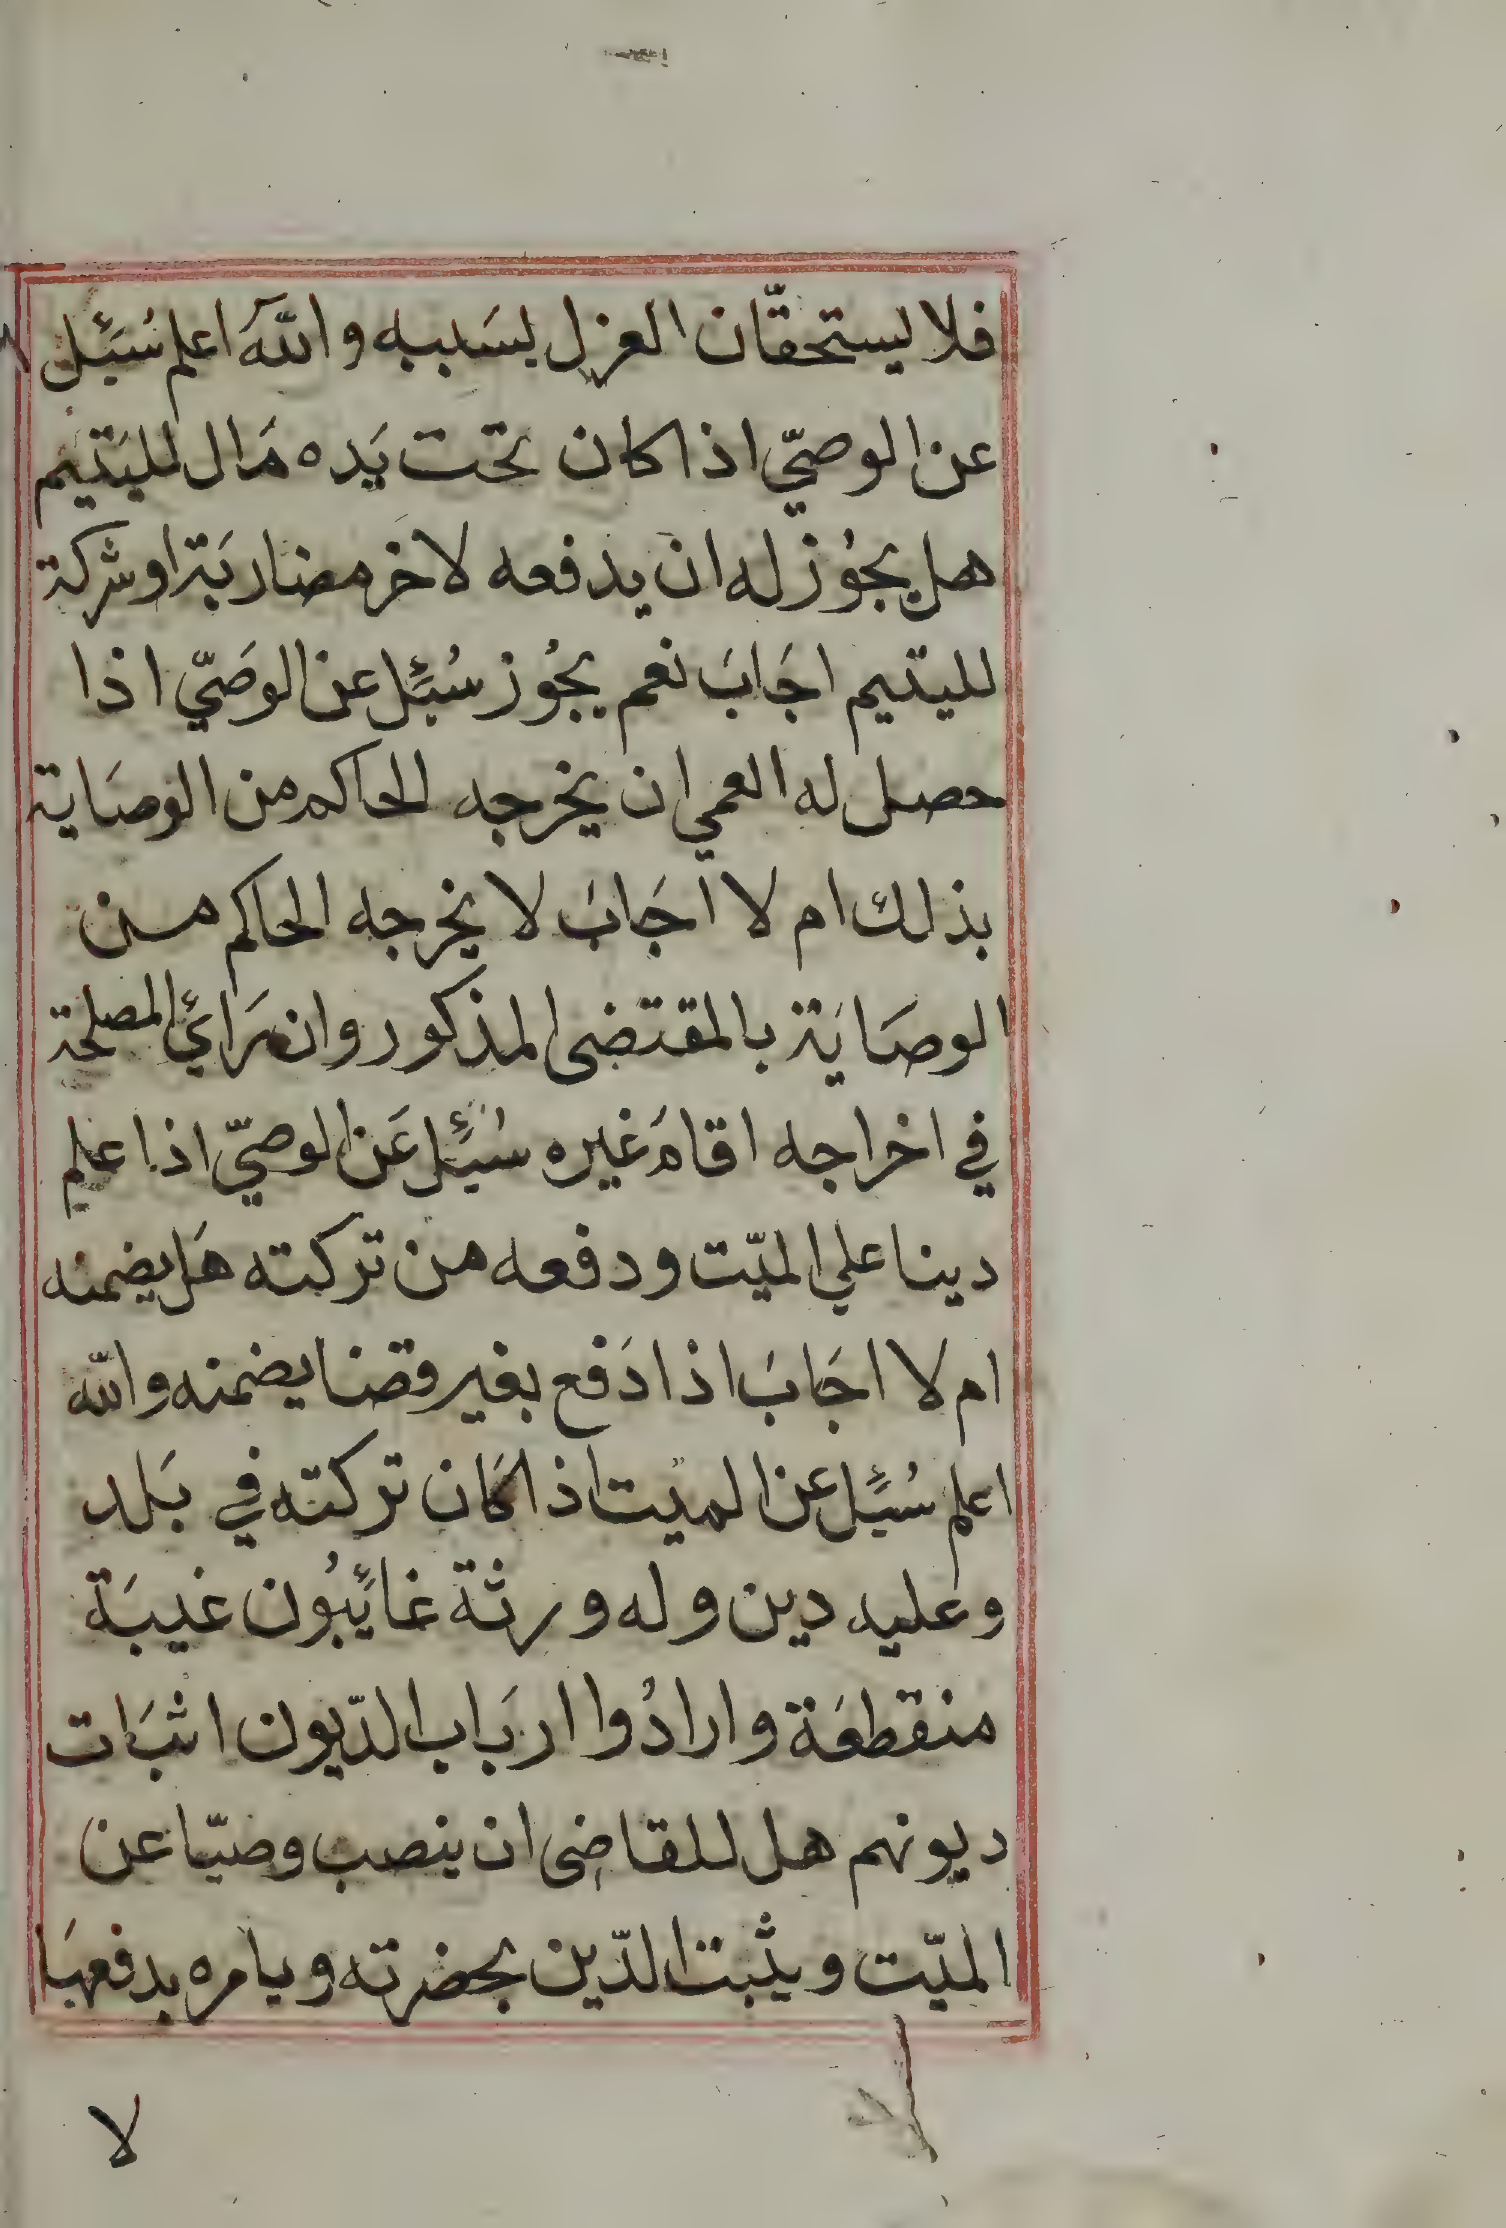 فلا يستحقّان العزل بسَببه والله اعلم سُئِل
عن الوصيّ اذا كان تحت يَده مَال لليَتيم
هل يجوُز له ان يدفعه لاخر مضاربَة او شركة
لليتيم اجَابَ نعم يجُوز سُئِل عن الوصَيّ اذا
حصل له العمي ان يخرجه الحاكم من الوصَاية
بذلك ام لا اجَابَ لا يخرجه الحاكم من
الوصَايَة بالمقتضى المذكور وان رَائي المصلحة
في اخراجه اقامَ غيره سُئِل عَن الوصيّ اذا علم
دينا علي الميّت ودفعه من تركته هَل يضمنه
ام لا اجَابَ اذا دَفع بغير قضا يضمنه والله
اعلم سُئِل عن الميت اذا كان تركته في بَلد
وعليه دين وله ورثة غائبُون غيبَة
منقطعَة وارادُوا اربَاب الدّيون اثبَات
ديونهم هل للقاضى ان ينصب وصيّا عن
الميّت ويثبت الدّين بحضرته ويامره بدفعهَا
لا